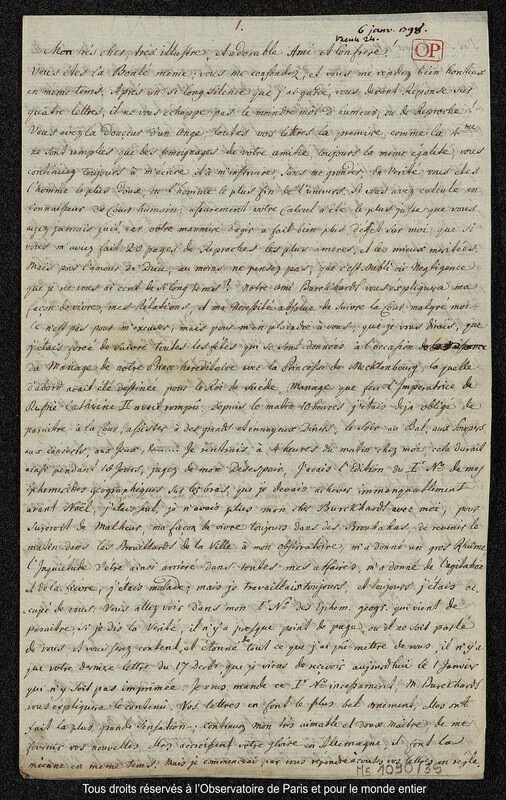 1.
6 janv. 1798.
OP
Mon très cher, très illustre, et adorable Ami et Confrère!
Vous êtes la Bonté même; vous me confondez, et vous me rendez bien honteux
en même tems. Après un si long silence que j'ai gardé, vous devant Réponse sur
quatre lettres, il ne vous échappe pas le moindre mot d'humeur, ou de Reproche!
Vous avez la Douceur d'un Ange; toutes vos lettres la première, comme la 4me
ne sont remplies que des temoignages de votre amitié toujours la même égalité, vous
continuez toujours à m'écrire et à m'instruire, sans me gronder; en Verité vous etes
l'homme le plus doux, ou l'homme le plus fin de l'Univers. Si vous avez calculé en
connaisseur du Cœur humain; assurement votre Calcul a été le plus juste que vous
ayez jamais fait, car votre manniere d'agir a fait bien plus d'effet sur moi, que si
vous m'avez fait 20 pages de Reproches les plus ameres, et les mieux meritées.
Mais pour l'amour de Dieu, au moins ne pensez pas, que c'est oubli ou Negligence
que je ne vous ai ecrit de si long tems? Notre ami Burckhardt vous expliquera ma
façon de vivre, mes Relations, et ma Necessité absolue de suivre la Cour malgré moi.
Ce n'est pas pour m'excuser; mais pour m'en plaindre à vous, que je vous dirais, que
j'etais forcé de suivre toutes les fêtes qui se sont données à l'occasion
du Mariage de notre Prince hereditaire avec la Princesse de Mecklenbourg, laquelle
d'abord avait été destinée pour le Roi de Suède, Mariage que feu l'Imperatrice de
Russie Catherine II avait rompû. depuis le matin 10 heures j'etais deja obligé de
paraitre à la Cour, assister à des grands et ennuyeux Diners, le Soir au Bal, aux soupers
aux Concerts, aux Jeux, &c...... Je rentrais à 4 heures du matin chez moi; cela durait
ainsi pendant 15 Jours, jugez de mon Desespoir, J'avais l'Edition du I. No. de mes
Ephemerides géographiques sur les bras, que je devais achever immanquablement
avant Noël, je n'avais plus mon cher Burckhardt avec moi; pour
surcroit de Malheur, ma façon de vivre toujours dans des Brouhahas, de revenir le
matin dans les Brouillards de la Ville à mon observatoire, m'a donné un gros Rhûme
L'Inquietude d'etre ainsi arrieré dans toutes mes affaires, m'a donné de l'agitation
et de la fievre, j'etais malade; mais je travaillais toujours, et toujours j'etais oc-
cupé de vous. Vous allez voir dans mon I. No. des Ephem. geogr. qui vient de
paraitre, si je dis la Verité, il n'y a presque point de page, ou il ne soit parlé
de vous, et vous serez content, et étonné de tout ce que j'ai pû mettre de vous, il n'y a
que votre derniere lettre du 17 Decbr. que je viens de reçevoir aujourd'hui le 1 Janvier
qui n'y soit pas imprimée. Je vous mande ce I. No. incessament, M. Burckhardt
vous expliquera le contenû. Vos lettres en font le plus bel ornement, elles ont
fait la plus grande Sensation; continuez mon très aimable et doux Maitre, de me
fournir vos nouvelles. Elles accroissent votre gloire en Allemagne, et font la
mienne en même tems; Mais je commencerai par vous repondre à toutes vos lettres en regle.
Ms 1090/35
Tous droits réservés à l'Observatoire de Paris et pour le monde entier